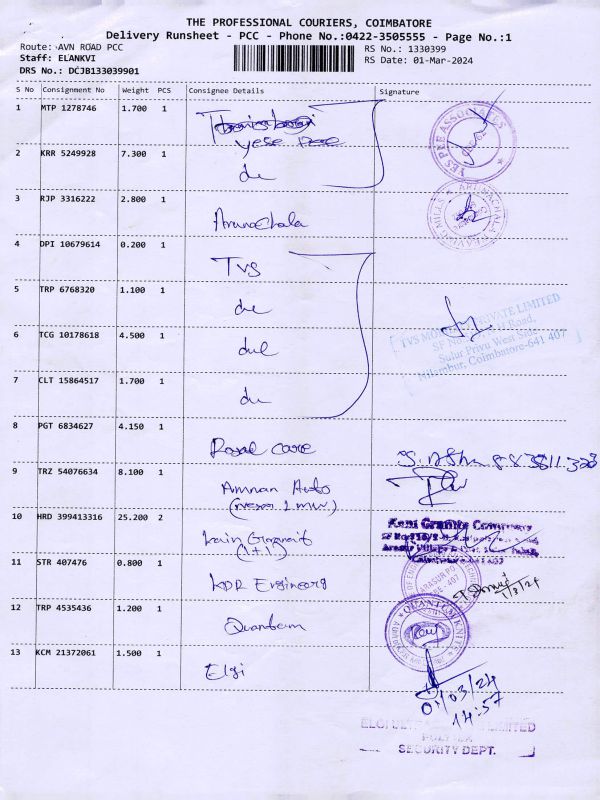 THE PROFESSIONAL COURIERS, COIMBATORE
Delivery Runsheet - PCC - Phone No.:0422-3505555 - Page No.:1
Route: AVN ROAD PCC
RS No.: 1330399
Staff: ELANKVI
RS Date: 01-Mar-2024
DRS No.: DCJB133039901
S No Consignment No Weight PCS Consignee Details Signature
1 MTP 1278746 1.700 1
yese
YES PEE ASSOCIATES
2 KRR 5249928 7.300 1 du
3 RJP 3316222 2.800 1 Arunachala
ARUNACHALA
4 DPI 10679614 0.200 1 TVS
5 TRP 6768320 1.100 1 du
TVS PRIVATE LIMITED
Road,
6 TCG 10178618 4.500 1
Sulur Privu West Side
Coimbatore-641 407
7 CLT 15864517 1.700 1 du
8 PGT 6834627 4.150 1 Royal care
9 TRZ 54076634 8.100 1 Amman Auto
10 HRD 399413316 25.200 2
(1+1)
Kani Granite Company
11 STR 407476 0.800 1 KDR Engineers
1/3/24
12 TRP 4535436 1.200 1 Quantum
QUANTUM KNITS
13 KCM 21372061 1.500 1 Elgi
01/03/24
14:57
LIMITED
SECURITY DEPT.